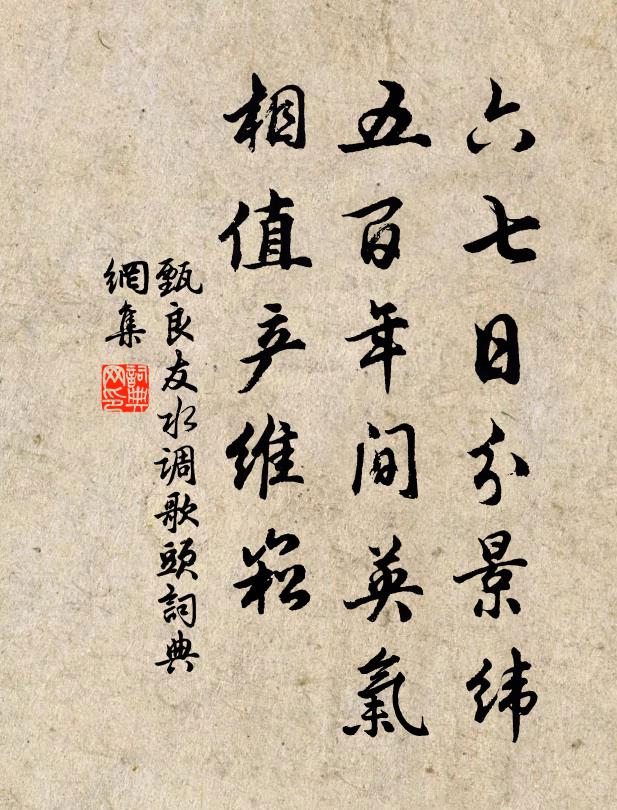 六七日分景纬
五百年间英氣
相值产维崧
甄良友水调歌頭詞典
網集
詞典
网印